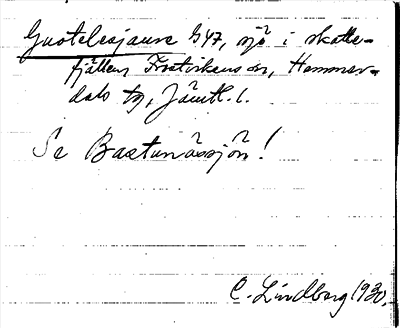 Guotelesjaure G47, sjö i skatte-
fjällen Frostvikens sn, Hammer-
dals tg, Jämtl. l.
Se Bastunässjön!
C. Lindberg 1930.